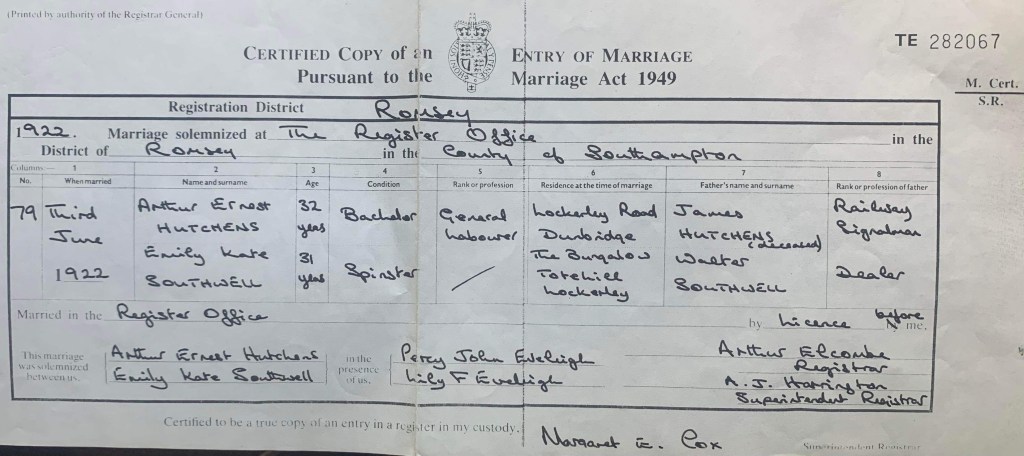 (Printed by authority of the Registrar General)
TE 282067
CERTIFIED COPY of an ENTRY OF MARRIAGE
Pursuant to the Marriage Act 1949
M. Cert.
S.R.
Registration District Romsey
1922. Marriage solemnized at The Register Office in the
District of Romsey in the County of Southampton
Columns:— 1 2 3 4 5 6 7 8
No. When married Name and surname Age Condition Rank or profession Residence at the time of marriage Father's name and surname Rank or profession of father
79 Third June 1922
Arthur Ernest
HUTCHENS
32
years
Bachelor
General
Labourer
Lockerley Road
Dunbridge
James
HUTCHENS
(deceased)
Railway
Signalman
Emily Kate
SOUTHWELL
31
years
Spinster
The Bungalow
Totehill
Lockerley
Walter
SOUTHWELL
Dealer
Married in the Register Office by Licence before me.
This marriage
was solemnized
between us,
Arthur Ernest Hutchens
Emily Kate Southwell
in the
presence
of us,
Percy John Eveleigh
Lily F Eveleigh
Arthur Elcombe
Registrar
A. J. Harrington
Superintendent Registrar
Certified to be a true copy of an entry in a register in my custody.
Margaret E. Cox
Superintendent Registrar